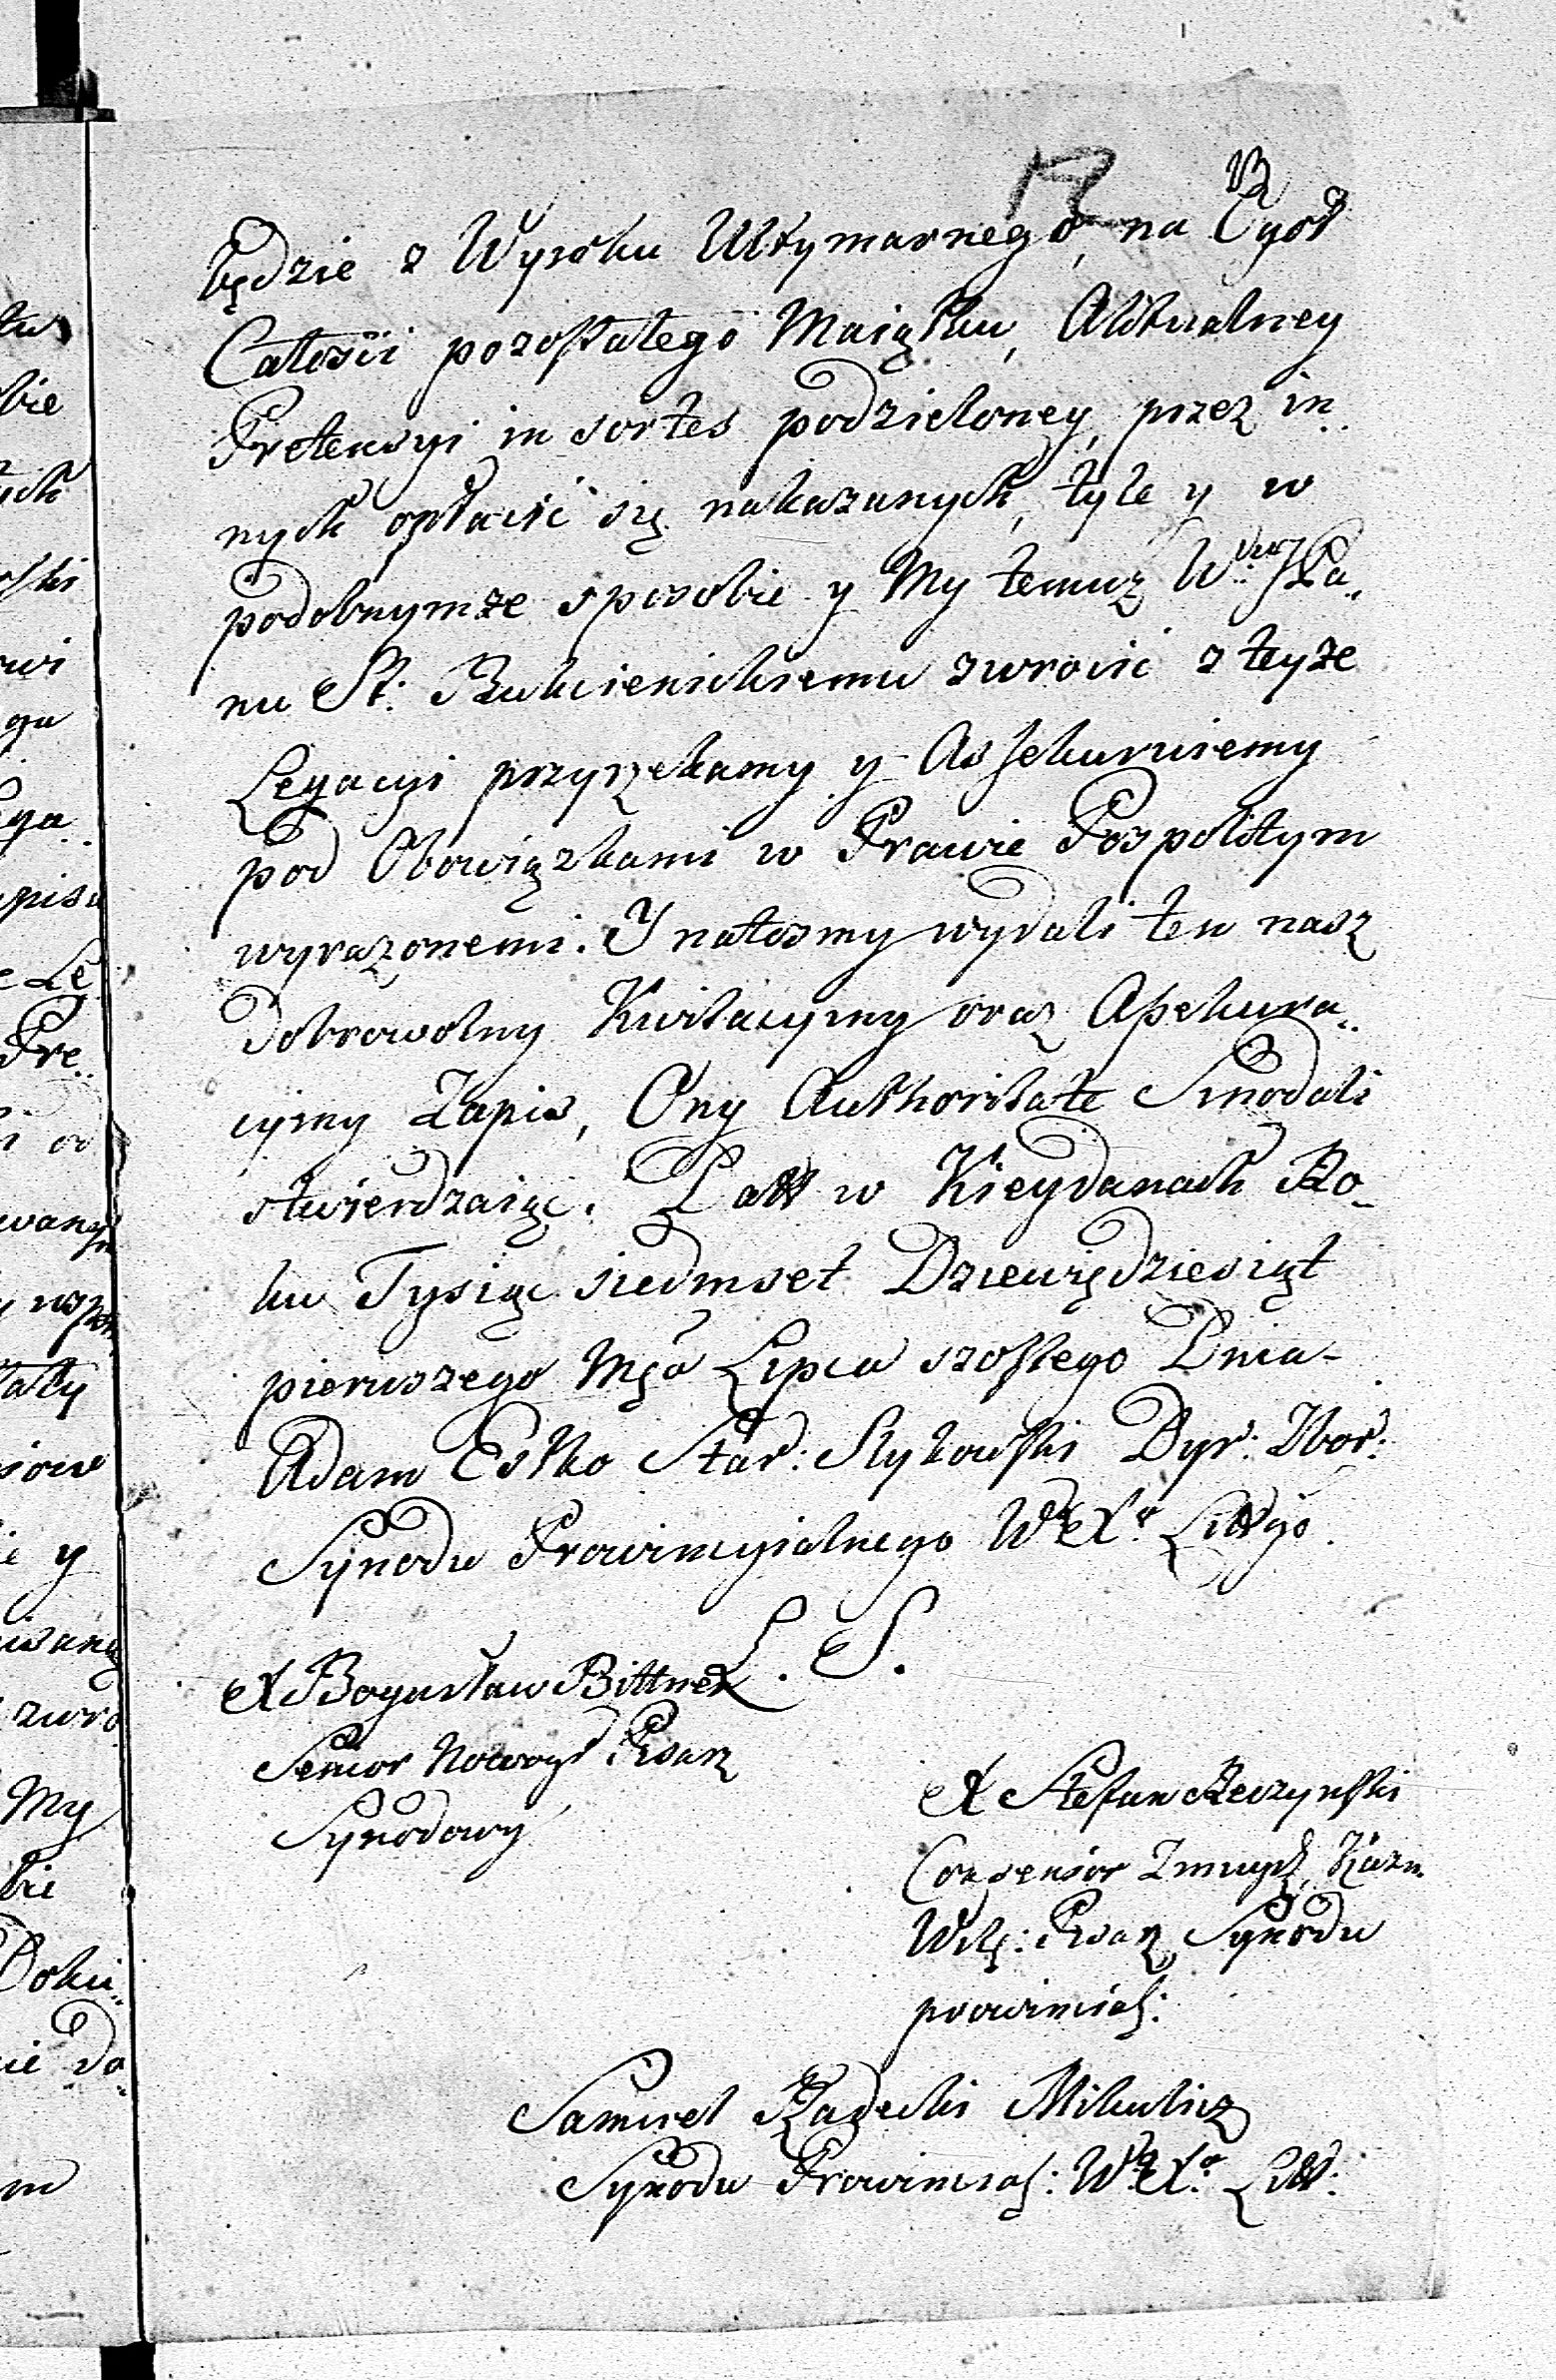 12
będzie z Wyroku Ultymarnego, na Ogoł
Całości pozostałego Maiątku, Aktualney
Pretensyi in sortes podzieloney, przez in„
nych opłacić się nakazanych, tyle y w
podobnymze sposobie y My temuz W JPa„
nu St: Bukienickiemu zwrocić z teyze
Legacyi przyrzekamy y Assekuruiemy
pod Obowiązkami w Prawie Pospolitym
wyrazonemi. Y natosmy wydali ten nasz
Dobrowolny Kwitacyiny oraz Assekura„
cyiny Zapis, Ony Authoritate Sinodali
stwierdzaiąc. Datt w Kieydanach Ro„
ku Tysiąc siedmset Dziewiędziesiąt
pierwszego Mca Lipca szostego Dnia
Adam Estko Star: Dyr: Zbor:
Synodu Prowincyialnego W° X° Littgo.
L. S.
X Bogusław Bittner
Senior Nowogr Pisarz
Synodowy
X Stefan
Consenior Zmuydz, Kazn.
Wilę: Pisarz Synodu
prowincial:
Samuel Mikulicz
Synodu Prowincial: W° X° Litt:
ków
bie
ych
owi
ga
pisu
e Le
Pre„
isaną
zwro
My
bie
Doku„